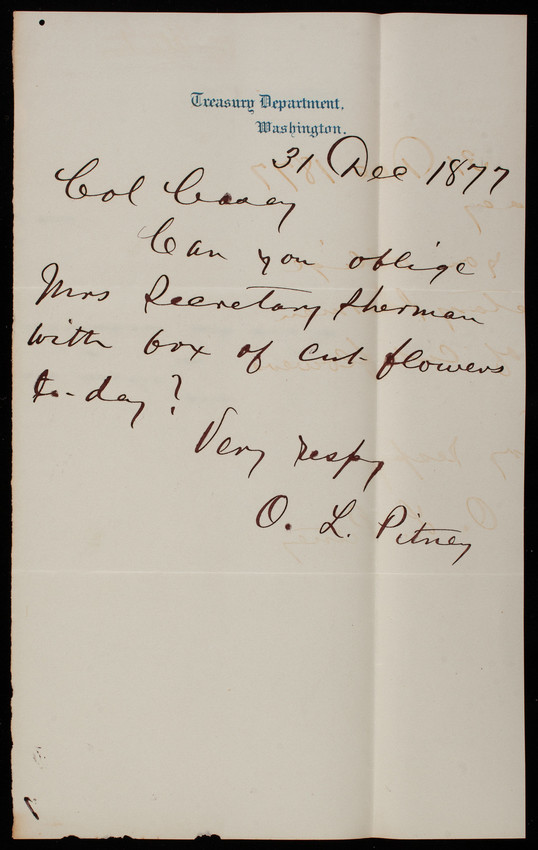 Treasury Department,
Washington.
31 Dec 1877
Col Casey
Can you oblige
Mrs Secretary Sherman
with box of cut-flowers
to-day?
Very respy
O. L. Pitney